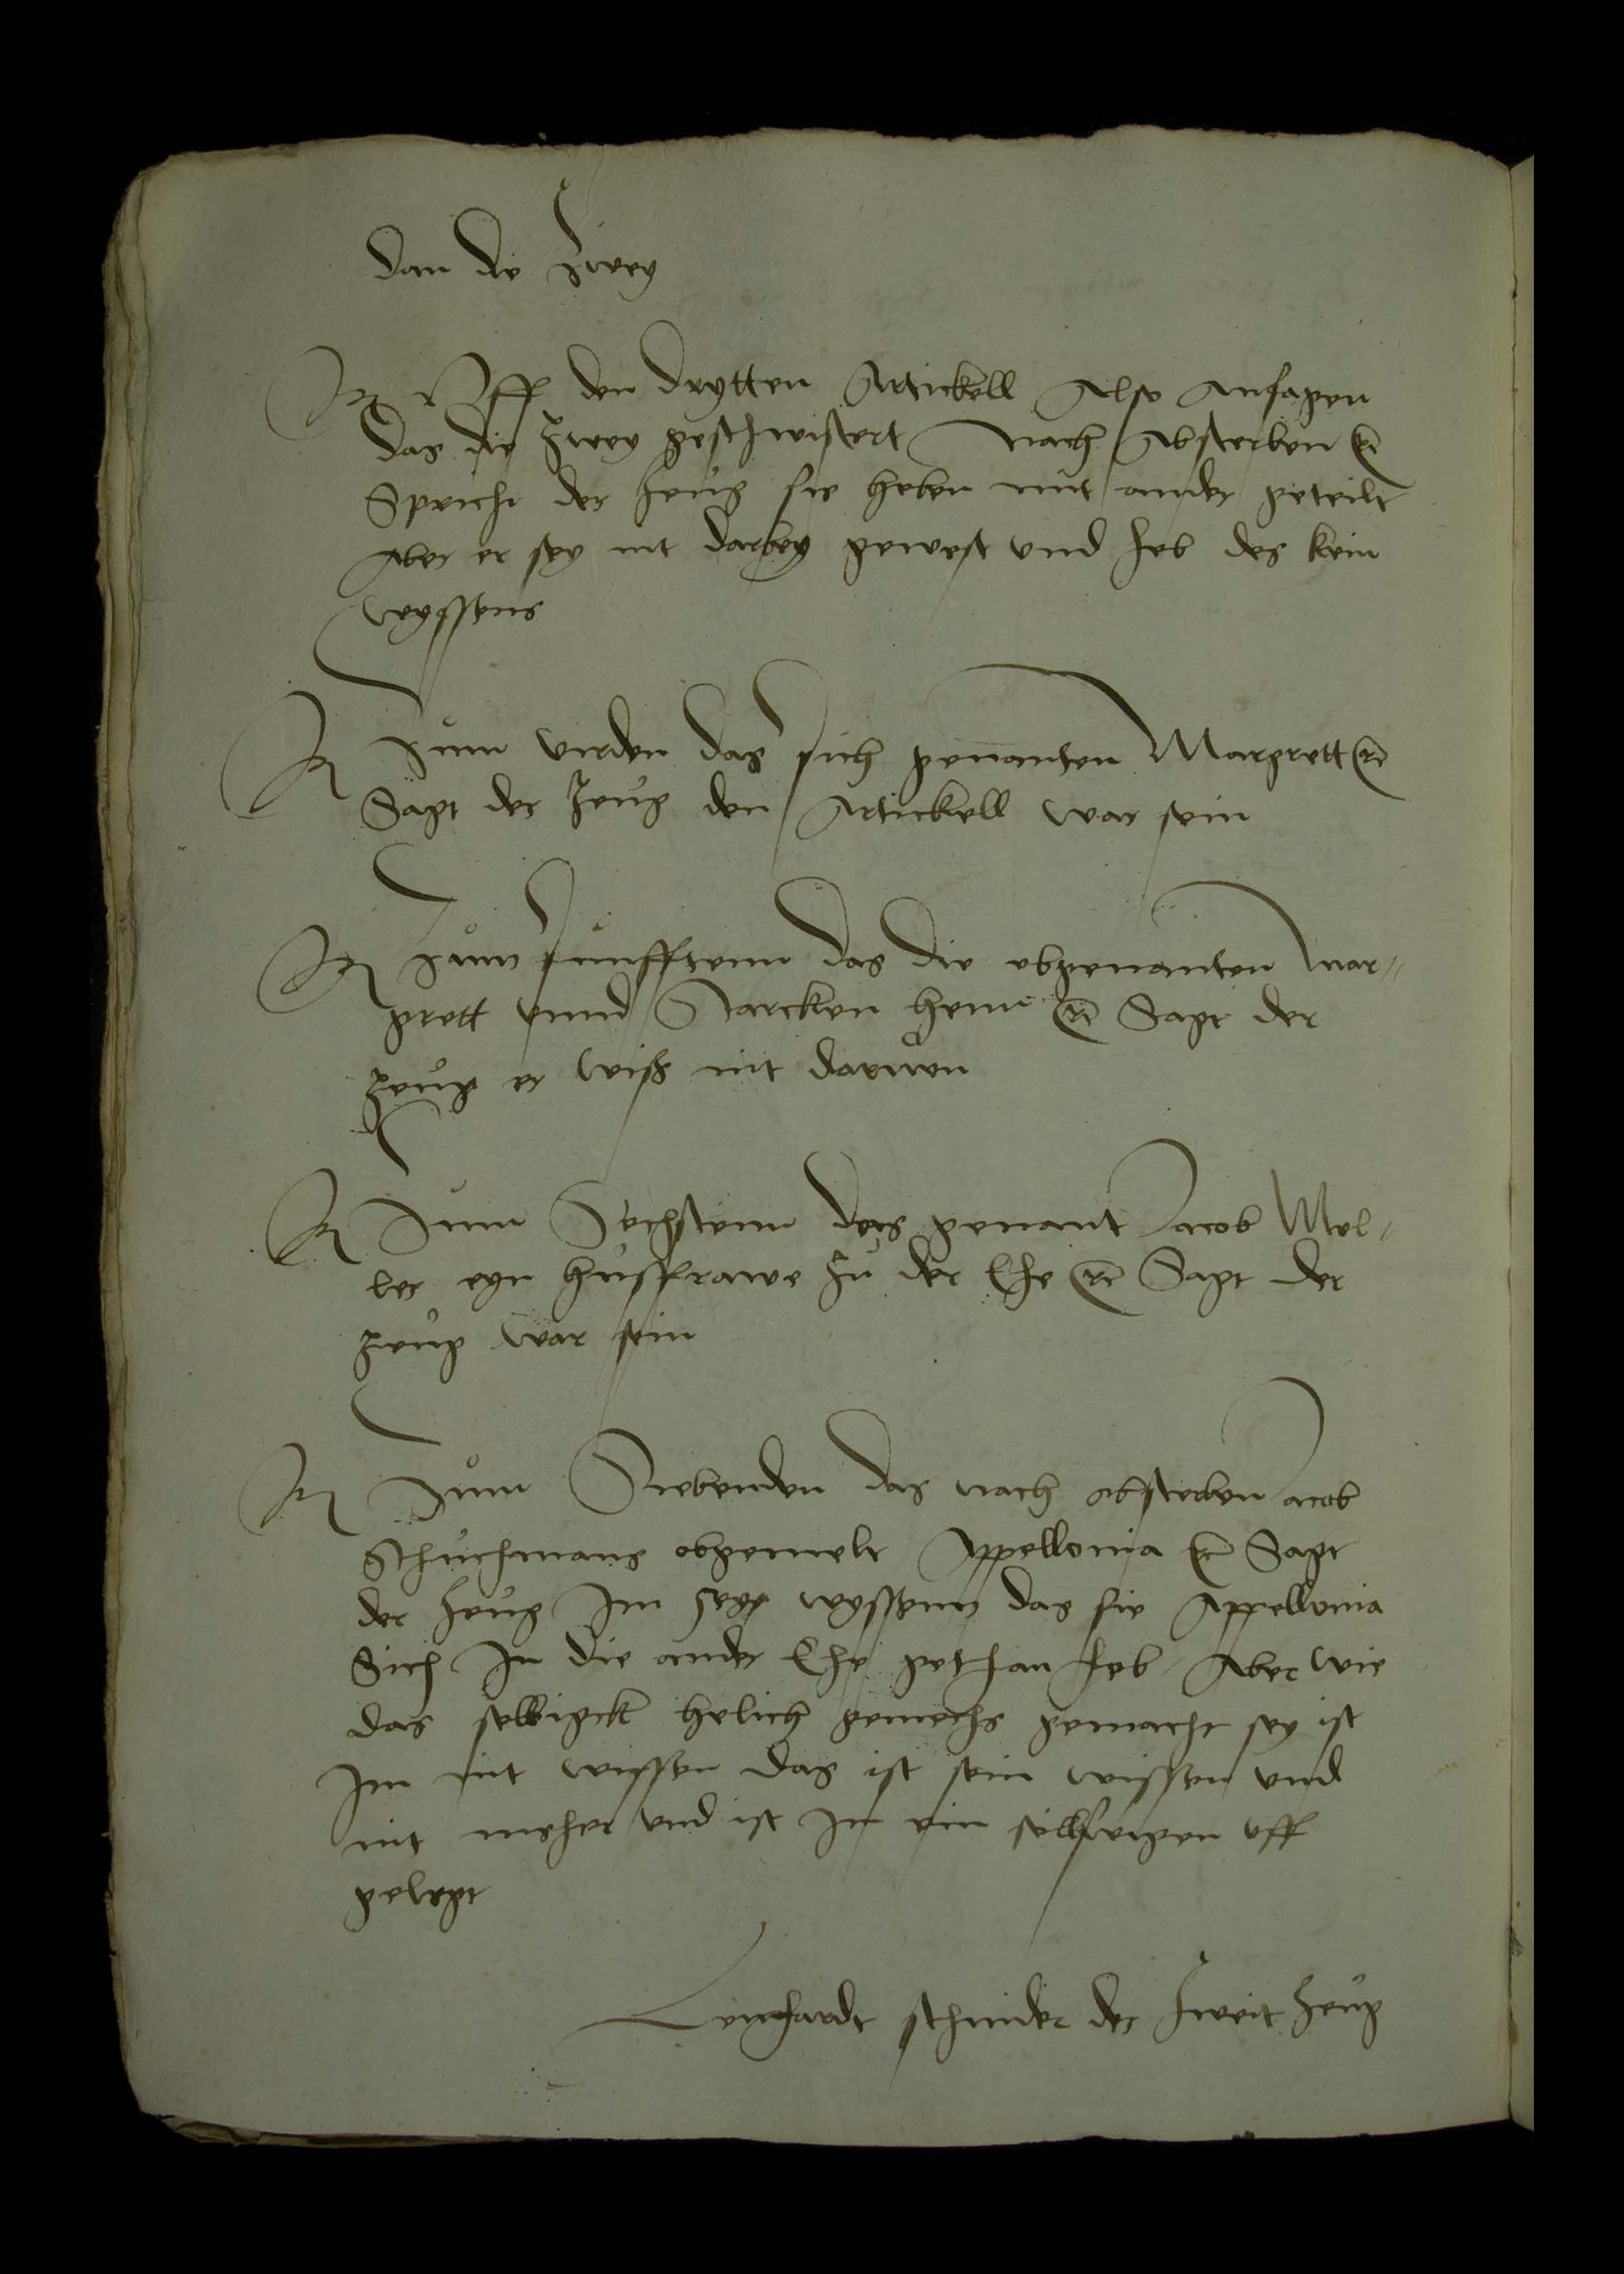 dan die Zwey
Uff den drytten Artickell Also ansagen
das die Zwey geschwistert nach absterben etc
Spricht der Zeug sie heben mit ander geteilt
Aber er sey nit darbey gewest und heb des kein
wyssens
Zum virden das sich genanten Margrett etc
Sagt der Zeug den Artickell war sein
Zum funfftenn das die obgenanten Mar„
grett vnnd Jarcken henn etc Sagt der
Zeug er wiß nit daruon
Zum Sechstenn das genant Jacob Mel„
ler eyn hussfrawe zu der Ehe etc Sagt der
Zeug war sein
Zum Siebenden das nach absterben Jacob
Schuchmans obgemelt Appellonia etc Sagt
der Zeug Im sey wyssenn das sie Appellonia
Sich In die ander Ehe gethan heb Aber wie
das selbigck helich gemechs gemacht sey ist
Im nit wissen das ist sein wissen vnd
nit meher vnd ist Im ein stillschweigen vff
gelegt
Lenhardt schnider der Zweit Zeug